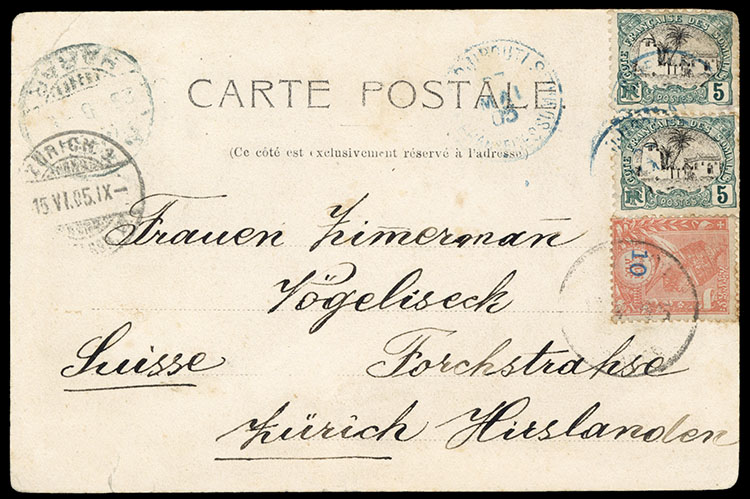 CARTE POSTALE
(Ce côté est exclusivement réservé à l'adresse)
Frauen Zimermañ
Vögeliseck
Suisse Forchstrahse
Zürich Hirslanden
HARAR
ZÜRICH
15.VI.05.IX
DJIBOUTI
MAI
05
CÔTE FRANÇAISE DES SOMALIS
RF
POSTES
5
CÔTE FRANÇAISE DES SOMALIS
RF
POSTES
5
10